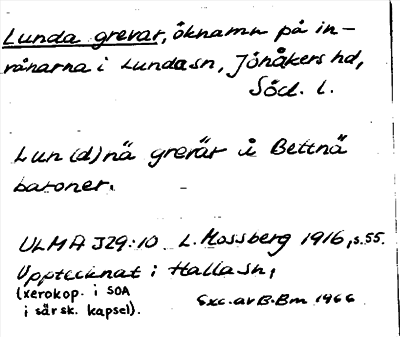 Lunda grevar, öknamn på in-
vånarna i Lunda sn, Jönåkers hd,
Söd. l.
Lun(d)nä grevär å Bettnä
baroner.
ULMA 329:10 L. Mossberg 1916, s.55.
Upptecknat i Halla sn,
(xerokop. i SOA
i särsk. kapsel).
Exc. av B.Bm 1966